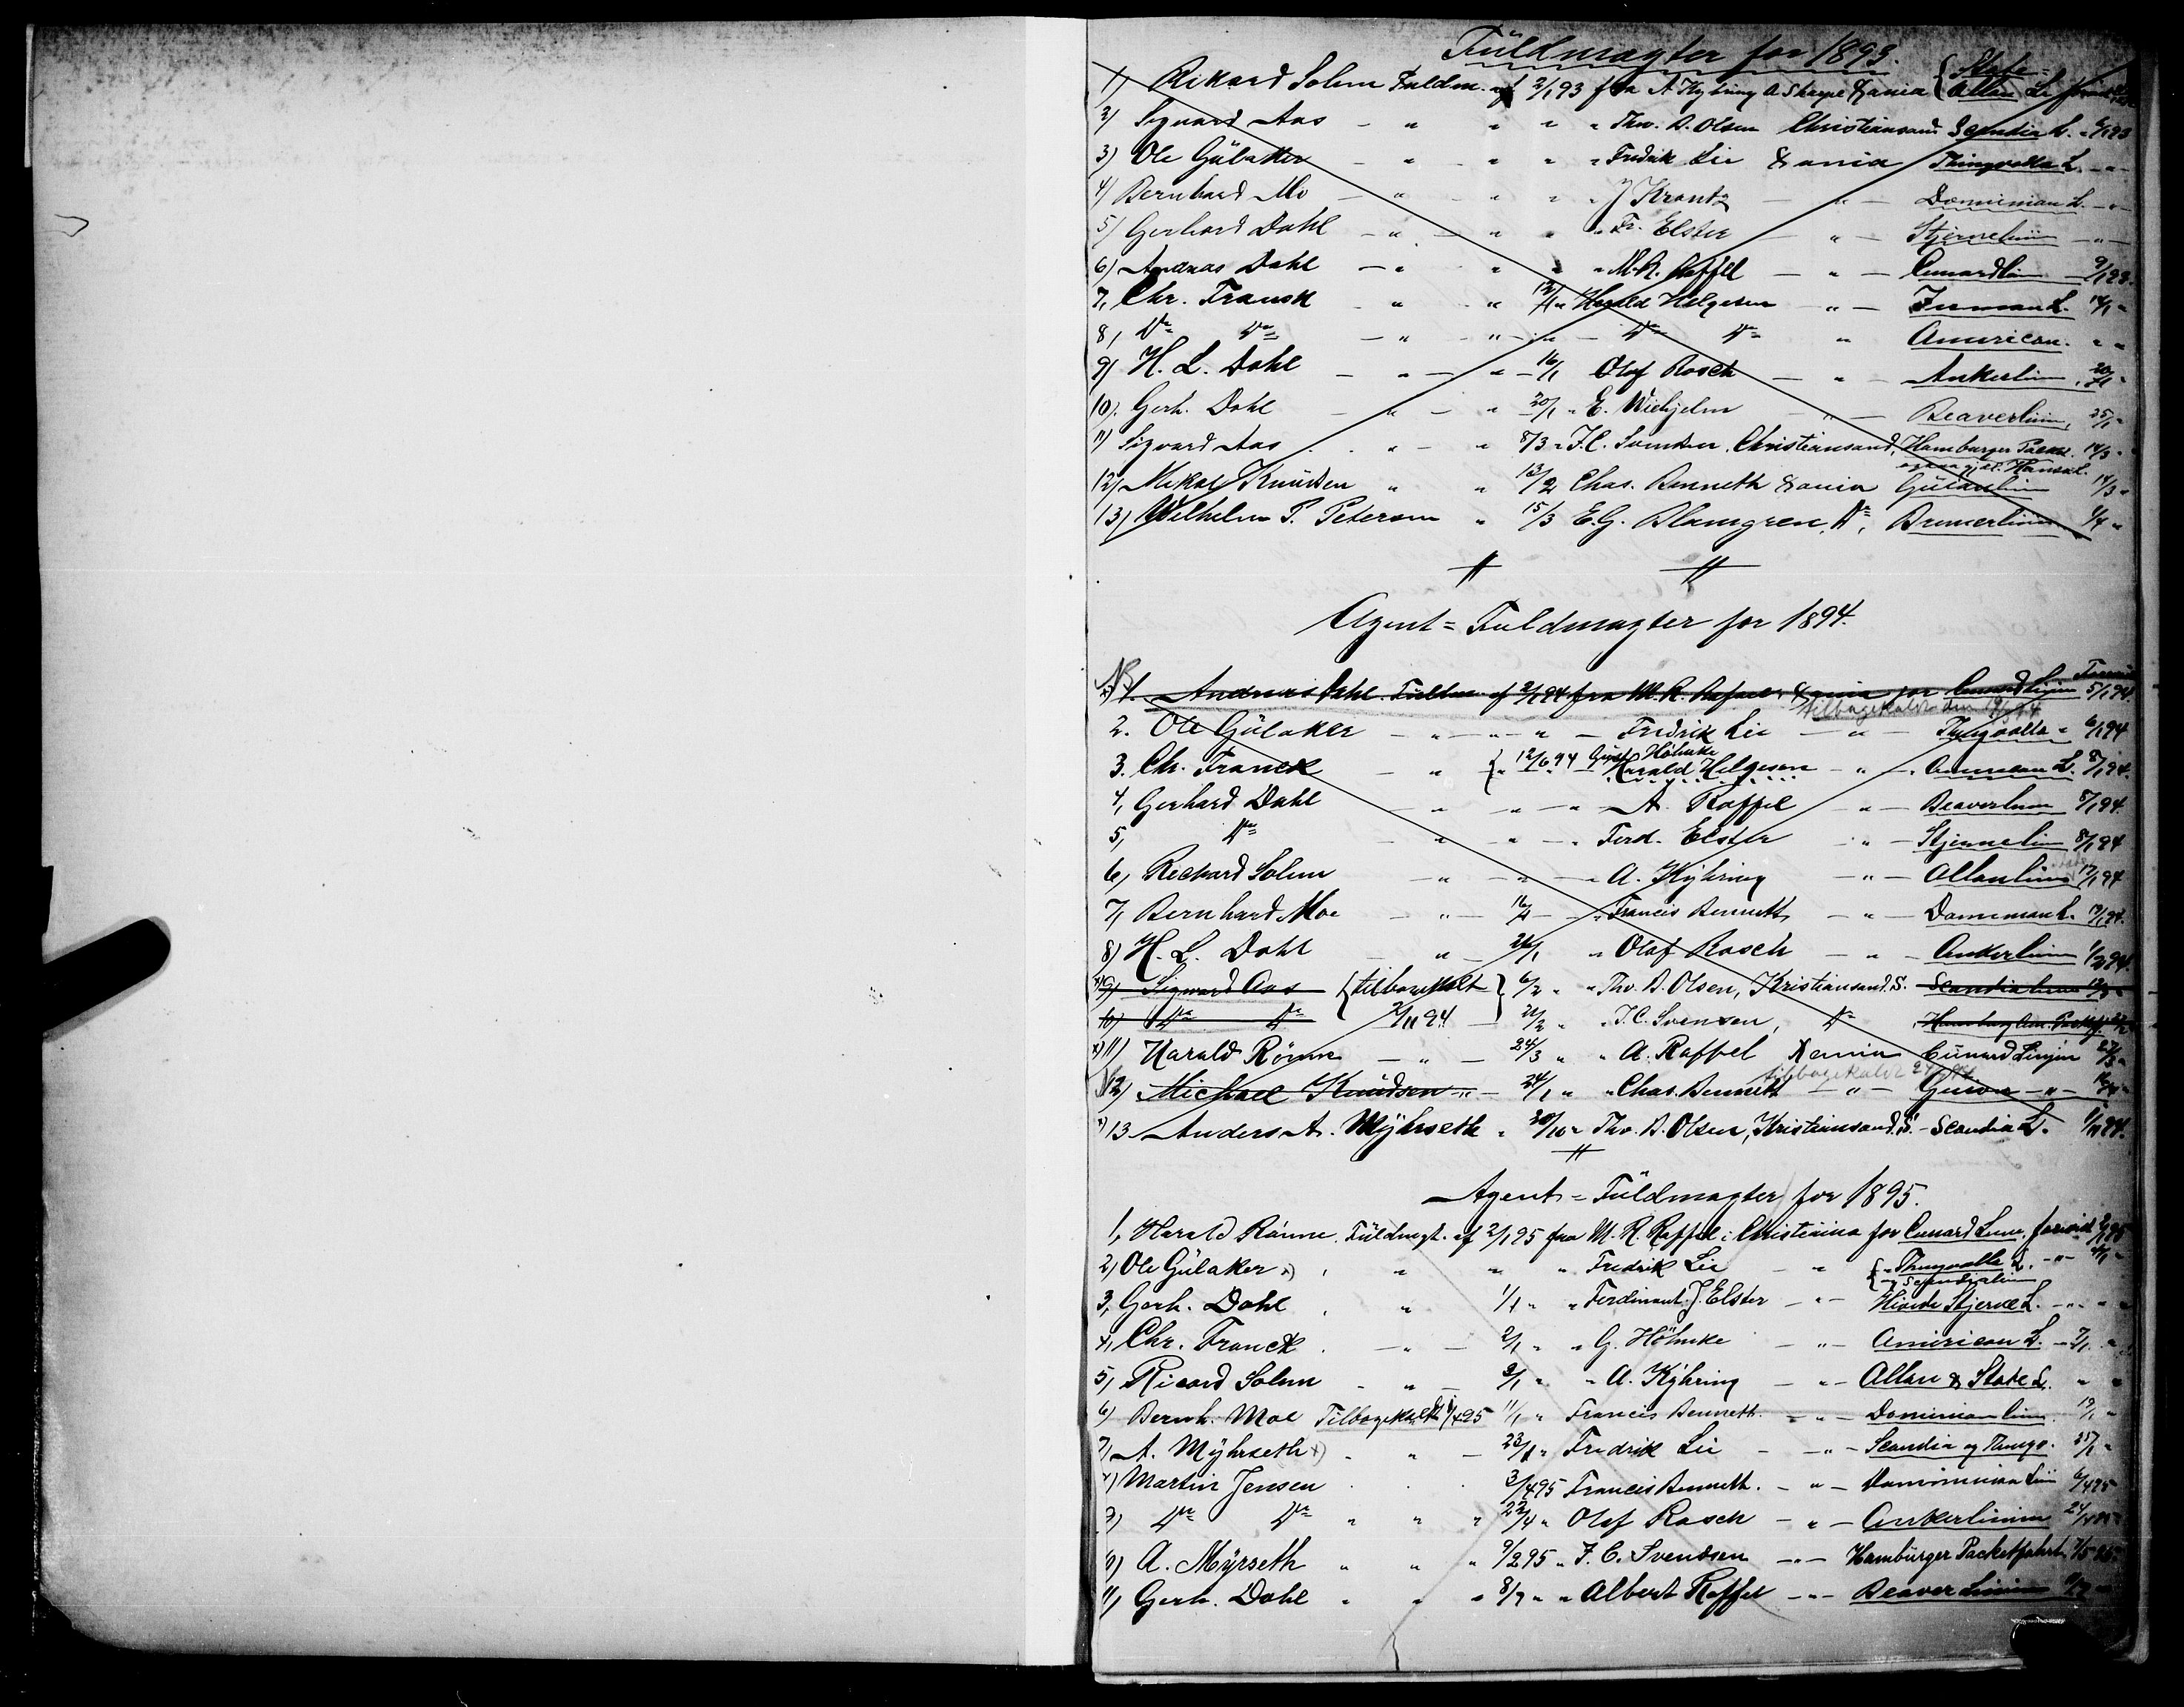 Fuldmagter for 1893.
1) Rikard Solem Fuldm. af 2/1 93 fra A Kyhring & Sharpe Xania { State= Allan Li
2) Sigvard Aas — " " " " Tho. B. Olsen Christiansand Scandia L. "
3) Ole Gulaker — " " " " Fredrik Lie Xania Thingvalla L. — " —
4) Bernhard Mo — " " " " J Krantz — " — Dominian L. — " —
5) Gerhard Dahl — " — " " " Fr. Elster — " — Stjernelinie — " —
6) Andreas Dahl — " " " " M. R. Raffel — " — Cunardlin 9/1 93.
7, Chr. Franck " " 12/1 " Harald Helgesen " — Inman L. 14/1 "
8, Do Do — " " " — Do Do " American. " "
9) H. L. Dahl — " — " — 16/1 Olaf Rosch — " — Ankerlinie, 20/1 "
10). Gerh. Dahl — " — " 20/1 " E. Wiehjelm " — Beaverlinie, 25/1 "
11) Sigvard Aas . " — " 8/3 " F. C. Svendsen, Christiansand, Hamburger Packet. 14/3 "
Hansa L.
12) Mikal Knudsen " " 13/2 Chas. Bennett Xania Guionlinie 14/3 "
13) Wilhelm P. Petersen " 15/3 E. G. Blomgren, Do, Bremerlinie 4/4 "
Agent = Fuldmagter for 1894.
x) 1. Andreas Dahl. Fuldm. af 2/1 94 fra M. R. Raffel, Xania for Cunard Linjen 5/1 94.
tilbagekaldt den
2. Ole Gulaker — " — " — " — Fredrik Lie — " — Thingvalla " 6/1 94
3. Chr. Franck — " { " 12/6 94 Gust Höhncke
Harald Helgesen — " — American L. 8/1 94.
4, Gerhard Dahl — " — " — " — A. Raffel — " — Beaverlinie 8/1 94.
5, Do — " — " — " Ferd. Elster — " — Stjernelinie 8/1 94
6, Rechard Solem — " — " — " A. Kyhring — " — Allanlinie 17/1 94
7, Bernhard Moe — " — 16/1 — " Francis Bennett — " — Dominian L. 19/1 94.
8) H. L. Dahl — " — 26/1 " Olaf Rosch — " — Ankerlinie 1/2 94.
x) 9) Sigvard Aas { tilbagekalt } 6/2 " " Tho. B. Olsen, Kristiansand. S. Scandia Linie
10) Do Do 2/11 94 — 21/2 " " F. C. Svensen, Do
x) 11) Harald Rönne — " — 24/3 " " A. Raffel Xania Cunard Linjen 27/3 "
tilbagekaldt
12) Michael Knudsen — " — 24/1 " " Chas. Bennett — " — Guion — " —
x) 13 Anders A. Myhrseth " 30/10 " Tho. B. Olsen, Kristiansand. S. — Scandia L. 1/11 94.
Agent = Fuldmagter for 1895.
1, Harald Rönne, Fuldmgt. af 2/1 95 fra M. R. Raffel i Christiania for Cunard Linie, forevist
2) Ole Gulaker x) , " " " Fredrik Lie — " { " Thingvalla L. — " — 4/1 "
og Scandialinie
3, Gerh. Dahl . " 1/1 " " Ferdinant. J. Elster — " — Hvide Stjerne L. — " — " "
4, Chr. Franck . — " — 2/1 " " G. Höhncke — " — American L. — 7/1 "
5, Ricard Solem . " — 2/1 " " A. Kyhring — " — Allan & State L. " "
6) Bernh. Moe Tilbagekaldt 1/4 95 11/1 " Francis Bennett — " — Dominian linie. 19/1 "
7, A. Myhrseth x) . " — 23/1 " Fredrik Lie — " — Scandia og Thingv. 25/1 "
Martin Jensen . . . 3/4 95 Francis Bennett. — " — Dominian Linie 6/4 95
9) Do Do " " " 22/4 " Olaf Rosch — " — Ankerlinien 24/4
10) A. Myrseth " " " 9/2 95 " F. C. Svendsen — " — Hamburger Packetfahrt 7/5 95
11, Gerh. Dahl " " " 8/7 " " Albert Raffel — " — Beaver Linien 11/7 "